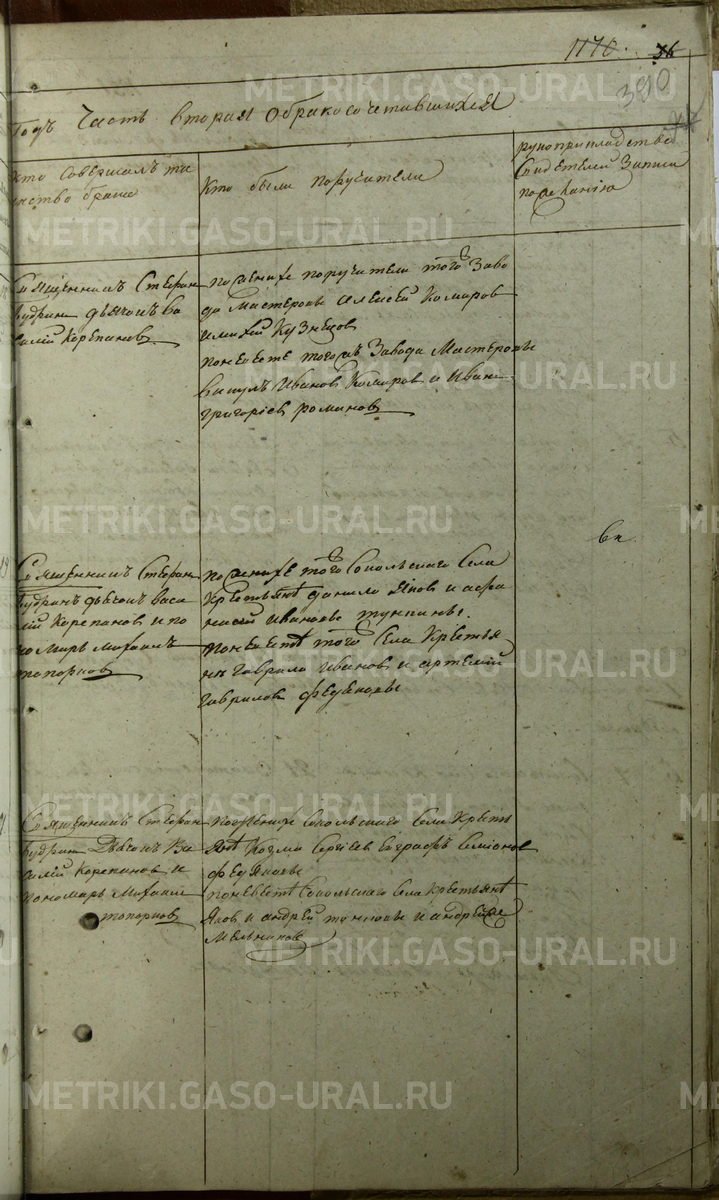 1170. 36
390
Годъ Часть вторая Обракосочетавшихся
Кто совершалъ таинство брака
Кто были поручители
рукоприкладство свидетелей записи по желанію
Священникъ Стефан
Кудрин дьячокъ Ва
силій Корепанов
по женихе поручители того Заво
да мастеровы Алексей Комаров
и Кузнецов
по невесте того жъ Завода Мастеровы
Викулъ Иванов Комаров и Иван
Григорьев романов
Священникъ Стефан
Кудринъ дьячокъ васи
лій Корепанов и по
номарь михаилъ
топорков
по женихе того Сокольскаго Села
Крестьянѣ данило Яков и афа
насей Ивановы тункины.
по невестѣ того Села Крестья
нѣ гаврило Иванов и артемій
гаврилов федяковы
ви
Священникъ Стефан
Кудрин Дьячокъ Ва
силій Корепанов и
пономарь Михаил
топорков
по женихе Сокольскаго Села Кресть
янѣ Козма Сергіев Евграфъ Семіонов
федяковы
по невестѣ Сокольскаго Села крестьянѣ
Яков и андрей тункины и андрей же
Мельников
METRIKI.GASO-URAL.RU